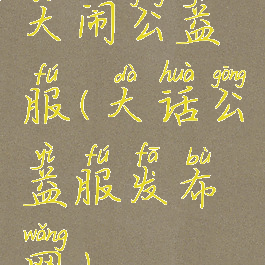 大闹公益
fú dà huà gōng
服(大话公
yì fú fā bù
益服发布
wǎng
网)